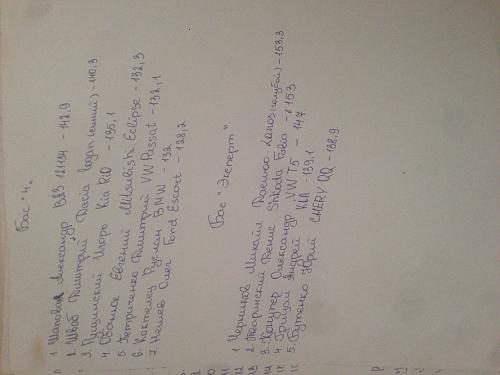 Бас "4"
1 Шаповал Александр ВАЗ 21134 - 142,9
2. Швец Дмитрий Dacia Logan (синий) - 140,3
3. Пушинский Игорь Kia Rio - 135,1
4. Евгений Mitsubishi Eclipse - 132,3
5 Петриченко Дмитрий VW Passat - 132,1
6. Коктелец Руслан BMW - 132
7 Нешев Олег Ford Escort - 128,2
Бас "Эксперт"
1 Черников Михаил Daewoo Lanos (голубой) - 158,3
2. Денис Shkoda Fabia - 153
3. Александр VW T5 - 147
4. Грицай Андрей KIA - 139,1
5. Бутенко Юрий CHERY QQ - 138,9